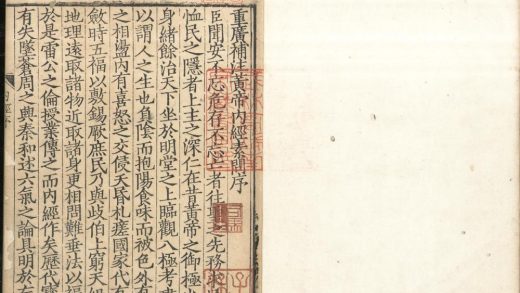 重廣補注黃帝內經素問序
臣聞安不忘危存不忘亡者往聖之先務求
恤民之隱者上主之深仁在昔黃帝之御極
身緒餘治天下坐於明堂之上臨觀八極考
以謂人之生也負陰而抱陽食味而被色外有
之相盪內有喜怒之交侵夭昏札瘥國家代有
斂時五福以敷錫厥庶民乃與歧伯上窮天紀
地理遠取諸物近取諸身更相問難垂法以福
於是雷公之倫授業傳之而內經作矣歷代寶
有失墜蒼周之興秦和述六氣之論具明於